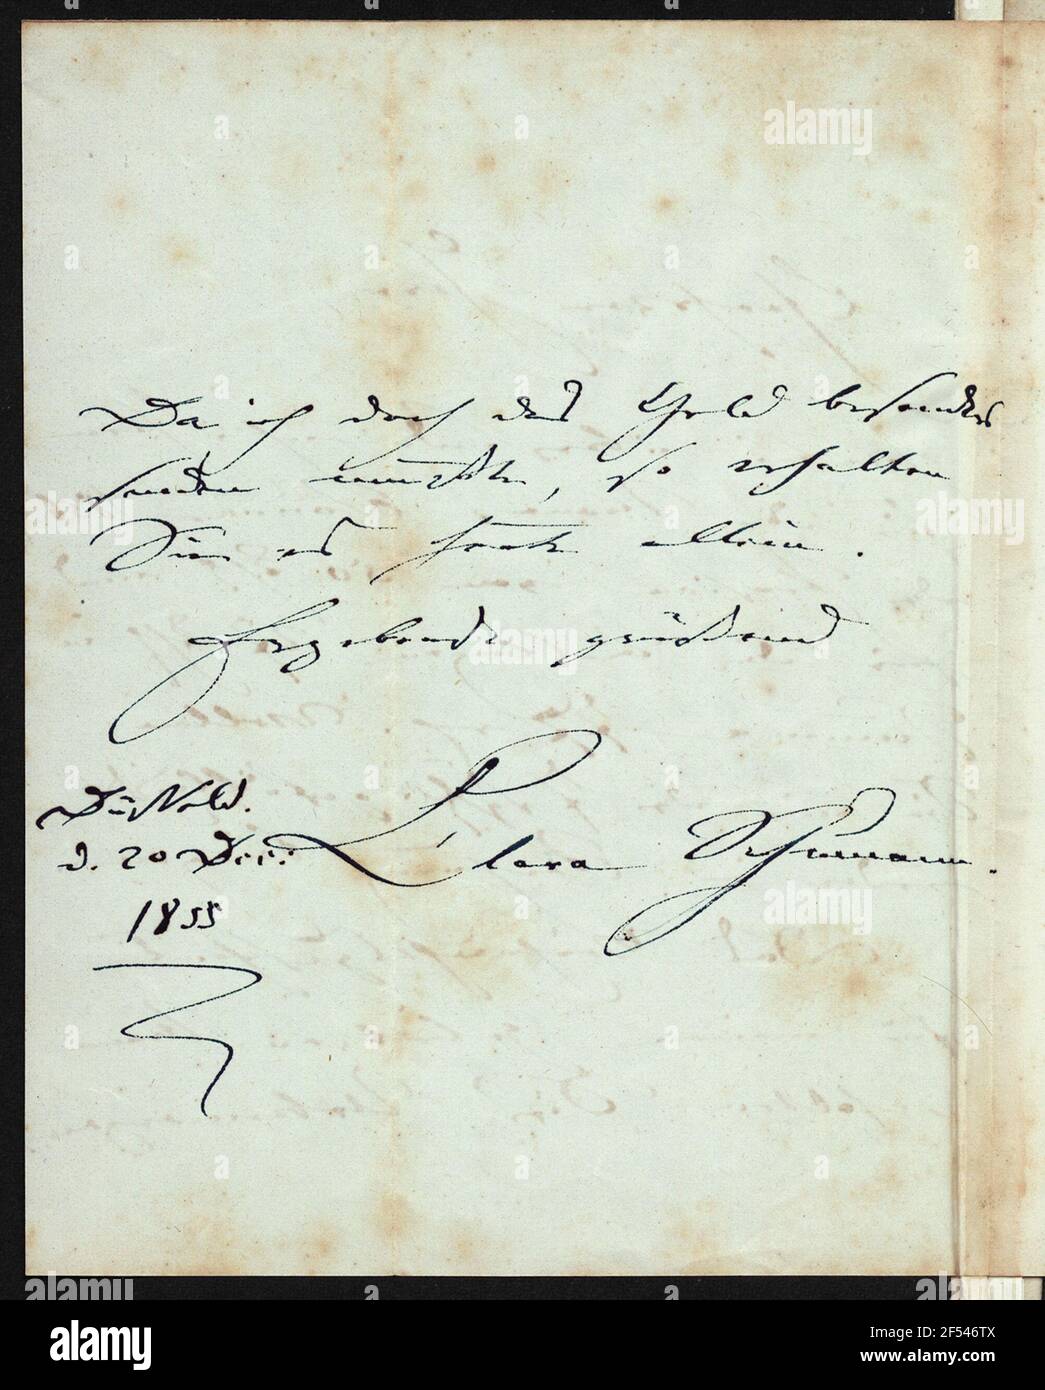 Da ich doch das Geld besonders
senden mußte, so erhalten
Sie es heute allein.
Ergebenst grüßend
Clara Schumann.
Düsseld.
d. 20 Dec:
1855
alamy
alamy
Image ID: 2F546TX
www.alamy.com